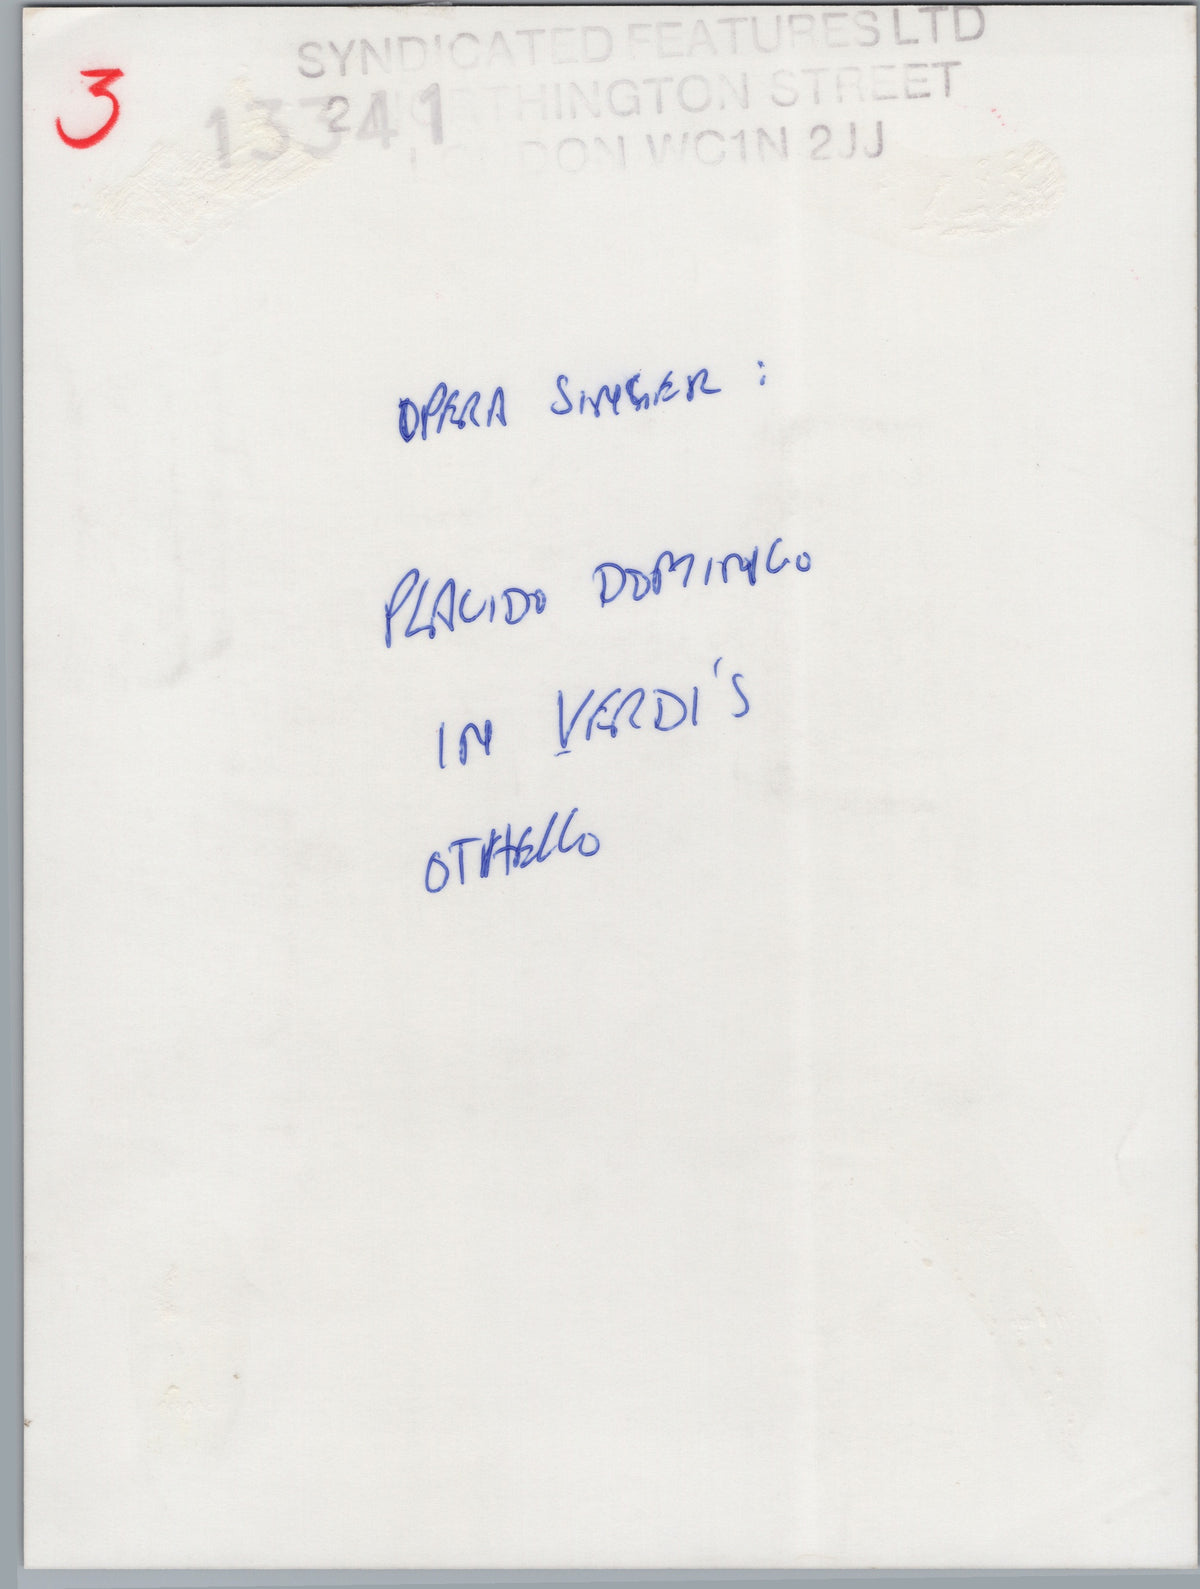 3
SYNDICATED FEATURES LTD
2 NORTHINGTON STREET
13341
LONDON WC1N 2JJ
OPERA SINGER :
PLACIDO DOMINGO
IN VERDI'S
OTHELLO